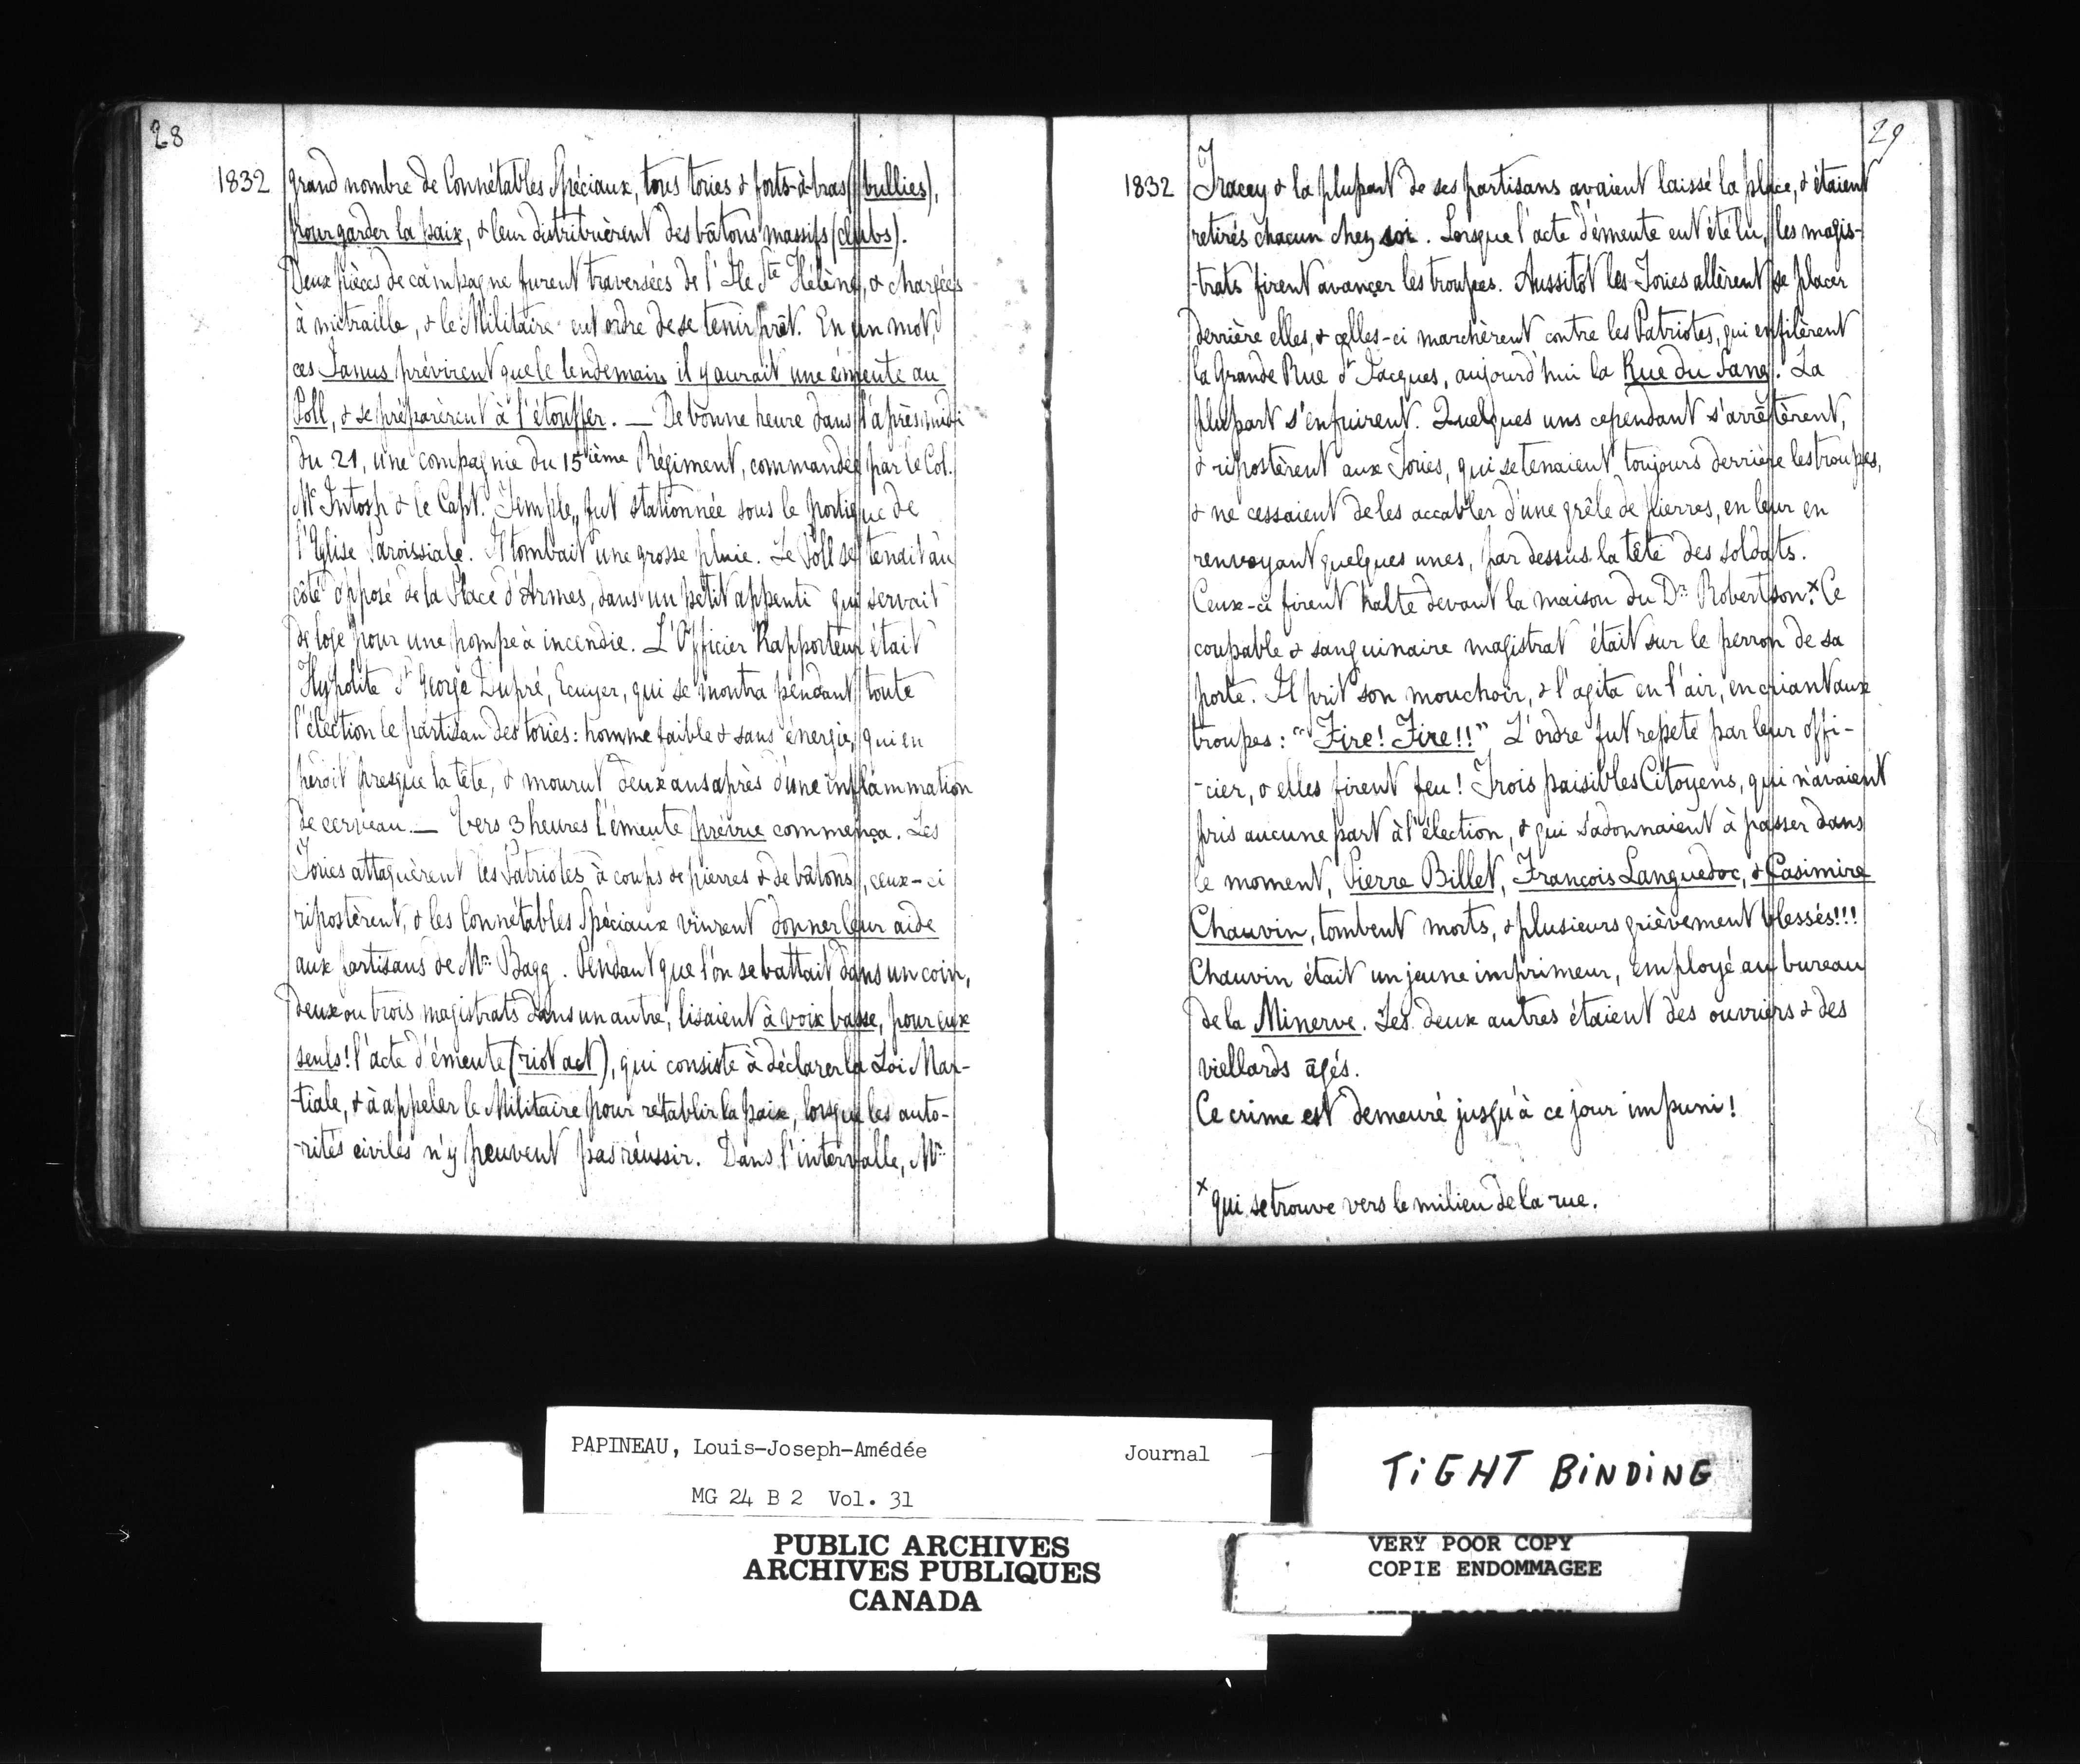 28
1832
grand nombre de Connétables Spéciaux, tous tories & forts-à-bras (bullies),
pour garder la paix, & leur distribuèrent des bâtons massifs (clubs).
Deux pièces de campagne furent traversées de l'Ile Ste Hélène, & chargées
à mitraille, & le Militaire eut ordre de se tenir prêt. En un mot,
ces Janus prévirent que le lendemain il y aurait une émeute au
Poll, & se préparèrent à l'étouffer. — De bonne heure dans l'après-midi
du 21, une compagnie du 15ième Régiment, commandée par le Col.
Mc Intosh & le Capt. Temple, fut stationnée sous le portique de
l'Eglise Paroissiale. Il tombait une grosse pluie. Le Poll se tenait au
côté opposé de la Place d'Armes, dans un petit appenti qui servait
de loge pour une pompe à incendie. L'Officier Rapporteur était
Hypolite St George Dupré, Ecuyer, qui se montra pendant toute
l'élection le partisan des tories: homme faible & sans énergie, qui en
perdit presque la tête, & mourut deux ans après d'une inflammation
de cerveau. — Vers 3 heures l'émeute prévue commença. Les
Tories attaquèrent les Patriotes à coups de pierres & de bâtons, ceux-ci
ripostèrent, & les Connétables Spéciaux vinrent donner leur aide
aux partisans de Mr. Bagg. Pendant que l'on se battait dans un coin,
deux ou trois magistrats dans un autre, lisaient à voix basse, pour eux
seuls! l'acte d'émeute (riot act), qui consiste à déclarer la Loi Mar-
-tiale, & à appeler le Militaire pour rétablir la paix, lorsque les auto-
-rités civiles n'y peuvent pas réussir. Dans l'intervalle, Mr.
29
1832
Tracey & la plupart de ses partisans avaient laissé la place, & étaient
retirés chacun chez soi. Lorsque l'acte d'émeute eut été lu, les magis-
-trats firent avançer les troupes. Aussitôt les Tories allèrent se placer
derrière elles, & celles-ci marchèrent contre les Patriotes, qui enfilèrent
la Grande Rue St Jacques, aujourd'hui la Rue du Sang. La
plupart s'enfuirent. Quelques uns cependant s'arrêtèrent,
& ripostèrent aux Tories, qui se tenaient toujours derrière les troupes,
& ne cessaient de les accabler d'une grêle de pierres, en leur en
renvoyant quelques unes, par dessus la tête des soldats.
Ceux-ci firent halte devant la maison du Dr. Robertson.x Ce
coupable & sanguinaire magistrat était sur le perron de sa
porte. Il prit son mouchoir, & l'agita en l'air, en criant aux
troupes: "Fire! Fire!!" L'ordre fut repété par leur offi-
-cier, & elles firent feu! Trois paisibles Citoyens, qui n'avaient
pris aucune part à l'élection, & qui s'adonnaient à passer dans
le moment, Pierre Billet, François Languedoc, & Casimire
Chauvin, tombent morts, & plusieurs grièvement blessés!!!
Chauvin était un jeune imprimeur, employé au bureau
de la Minerve. Les deux autres étaient des ouvriers & des
viellards âgés.
Ce crime est demeuré jusqu'à ce jour impuni!
x qui se trouve vers le milieu de la rue.
PAPINEAU, Louis-Joseph-Amédée Journal
MG 24 B 2 Vol. 31
PUBLIC ARCHIVES
ARCHIVES PUBLIQUES
CANADA
TIGHT BINDING
VERY POOR COPY
COPIE ENDOMMAGEE
VERY POOR COPY